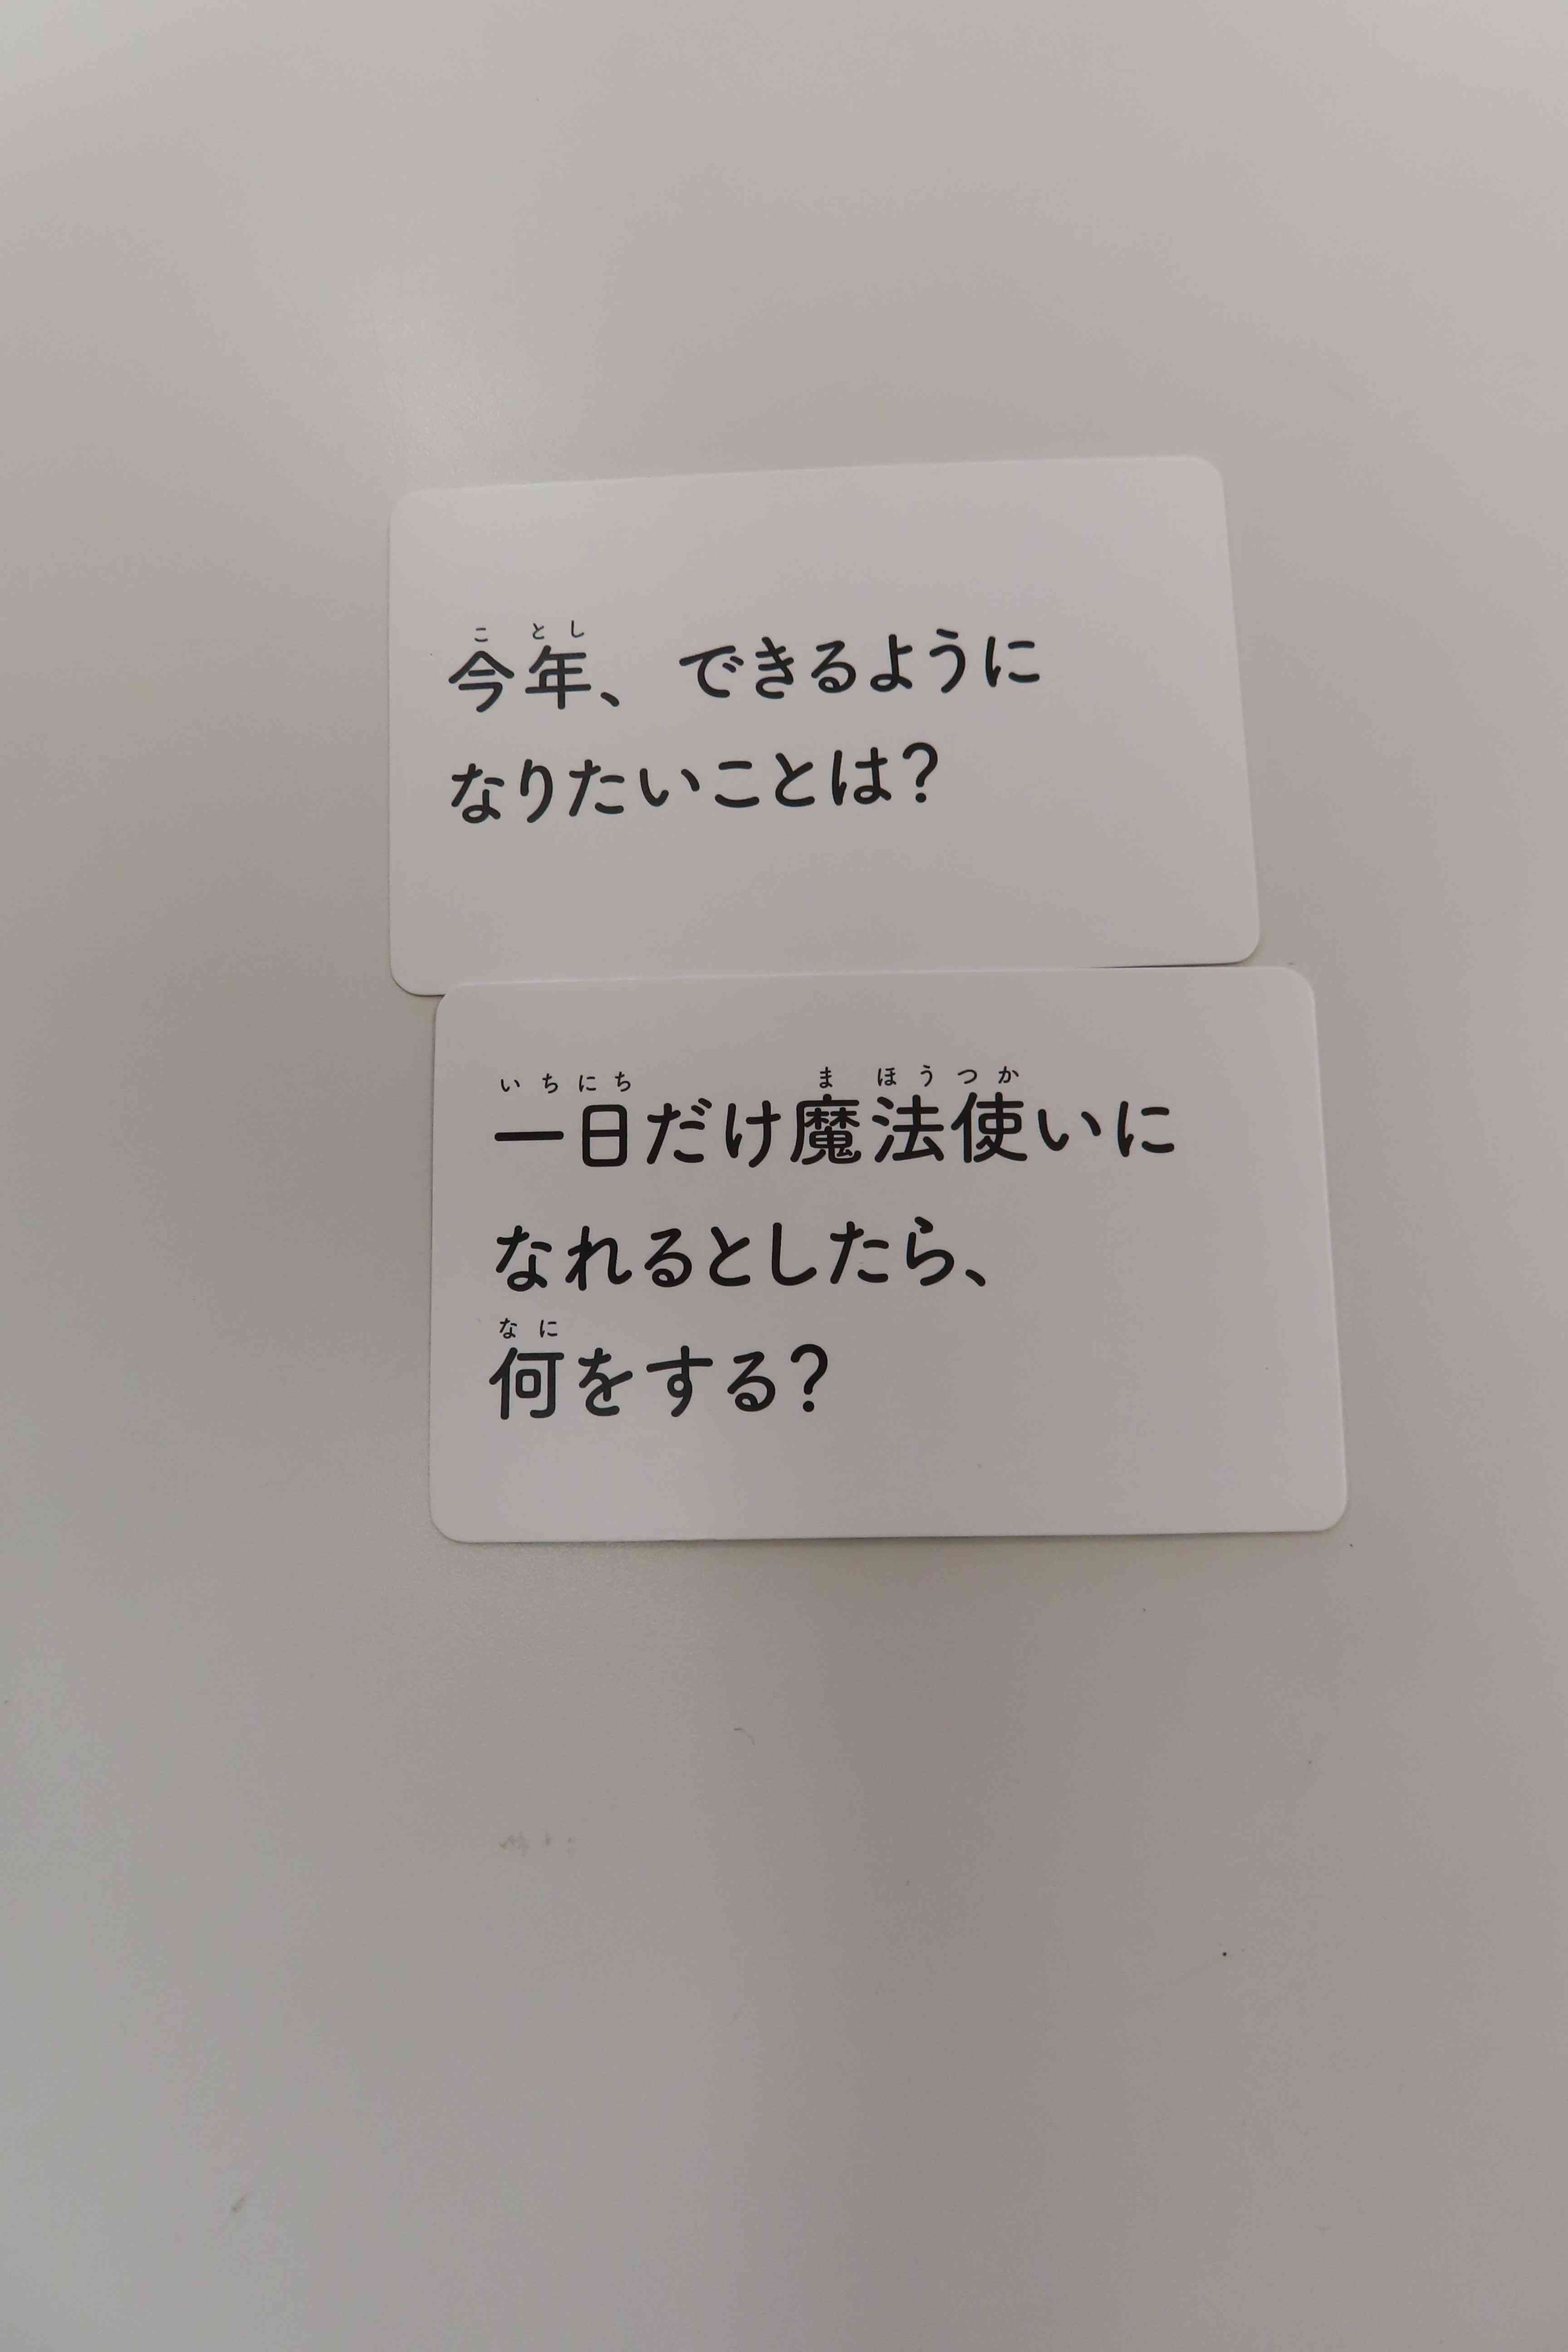 ことし
今年、できるように
なりたいことは?
いちにち まほうつか
一日だけ魔法使いに
なれるとしたら、
なに
何をする?